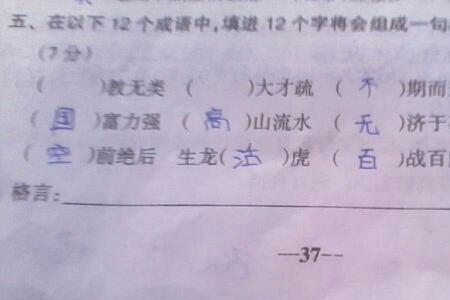 五、在以下12个成语中,填进12个字将会组成一句
(7分)
(  )教无类 (  )大才疏 (不)期而
(国)富力强 (高)山流水 (无)济于
(空)前绝后 生龙(活)虎 (百)战百
格言:
—37--